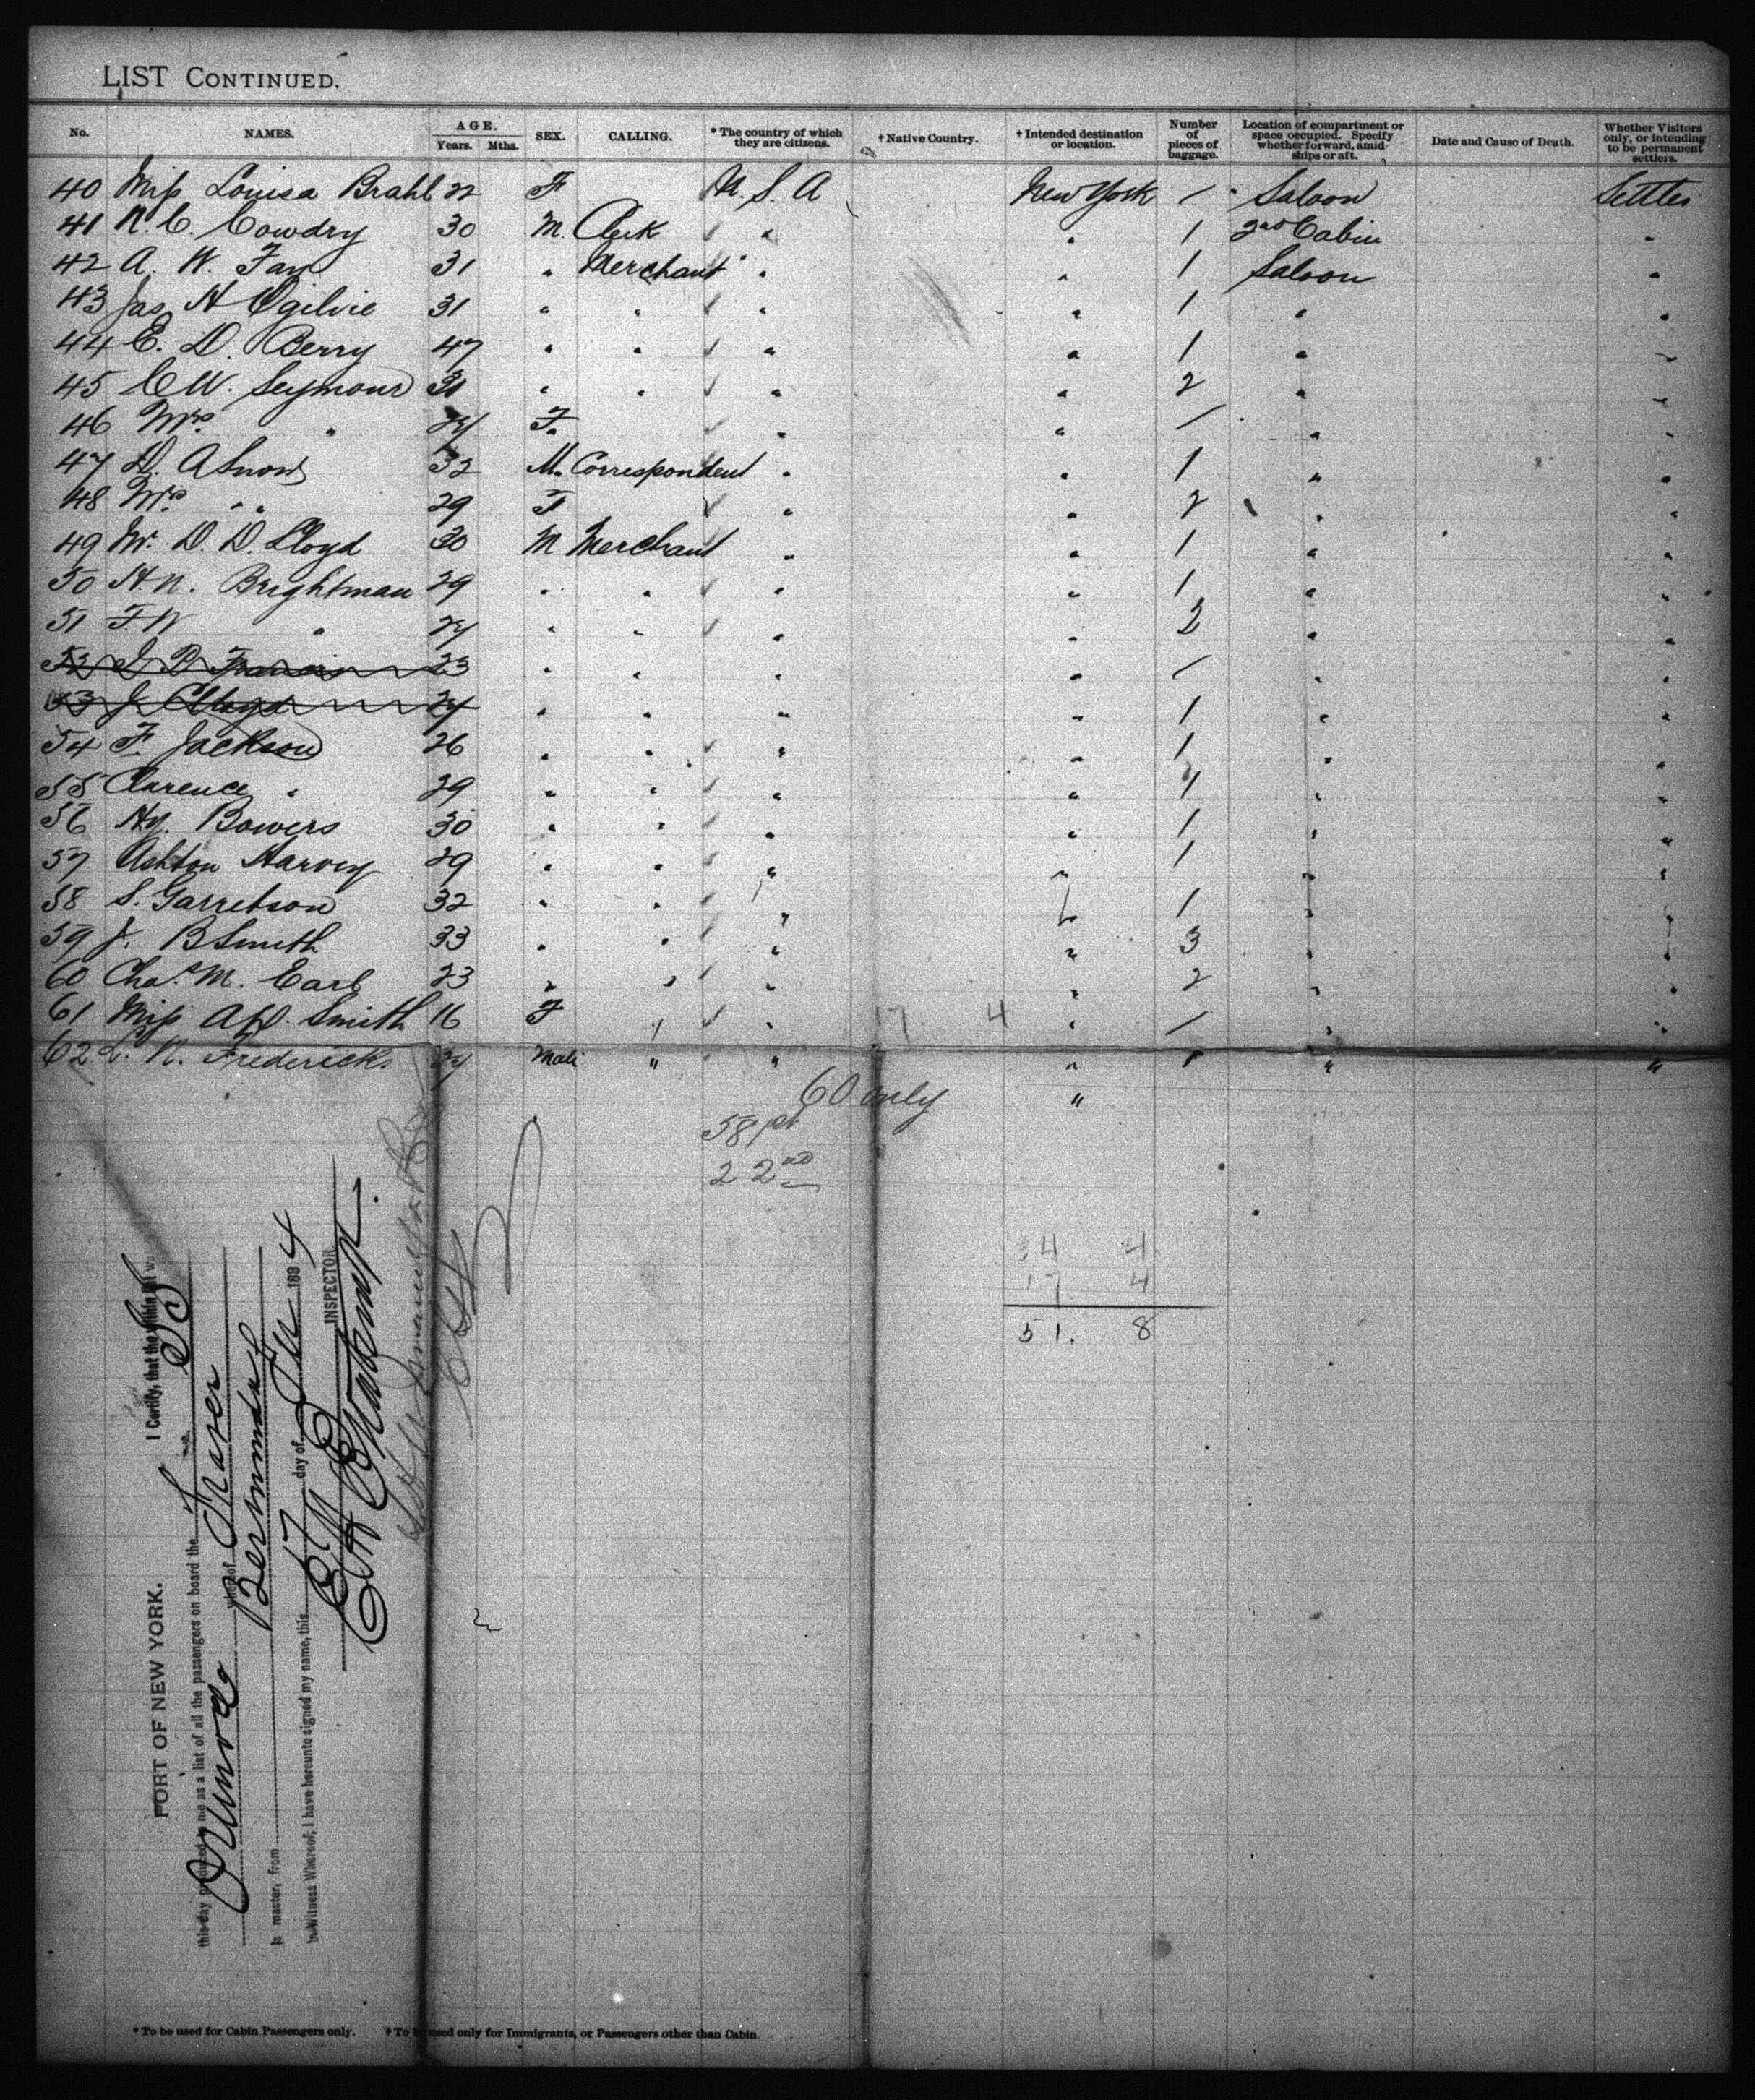 LIST CONTINUED.
No. NAMES. AGE. Years. Mths. SEX. CALLING. * The country of which they are citizens. † Native Country. † Intended destination or location. Number of pieces of baggage. Location of compartment or space occupied. Specify whether forward, amidships or aft. Date and Cause of Death. Whether Visitors only, or intending to be permanent settlers.
40 Miss Louisa Brahl 22 F U. S. A New York / Saloon Settler
41 N. C. Cowdry 30 M. Clerk " " 1 2nd Cabin "
42 A. W. 31 " Merchant " " 1 Saloon "
43 Jas H Ogilvie 31 " " " " 1 " "
44 E. D. Berry 47 " " " " 1 " "
45 C W. Seymour 31 " " " " 2 " "
46 Mrs " 27 F. " " / " "
47 D. A Snow 32 M. Correspondent " " 1 " "
48 Mrs " " 29 F " " 2 " "
49 Mr. D. D. Lloyd 30 M Merchant " " 1 " "
50 H. N. Brightman 29 " " " " 1 " "
51 F. W " 27 " " " " 2 " "
52 J B Francis 23 " " " " / " "
53 J Lloyd 24 " " " " 1 " "
54 F. Jackson 26 " " " " 1 " "
55 Clarence " 29 " " " " 1 " "
56 Hy. Bowers 30 " " " " 1 " "
57 Ashton Harvey 29 " " " " 1 " "
58 S. Garretson 32 " " " " 1 " "
59 J. B Smith 33 " " " " 3 " "
60 Chas. M. Earl 23 " " " " 2 " "
61 Miss Smith 16 F " " 17 4 " / " "
62 L. N. Fredericks 27 Male " " " 1 " "
60 only "
58 1st
2 2nd
34 4
17 4
51. 8
PORT OF NEW YORK.
I Certify, that the within list w
this day presented to me as a list of all the passengers on board the SS
Orinoco whereof Fraser
is master, from Bermuda
In Witness Whereof, I have hereunto signed my name, this 17 day of 1894
INSPECTOR.
* To be used for Cabin Passengers only. † To be used only for Immigrants, or Passengers other than Cabin.